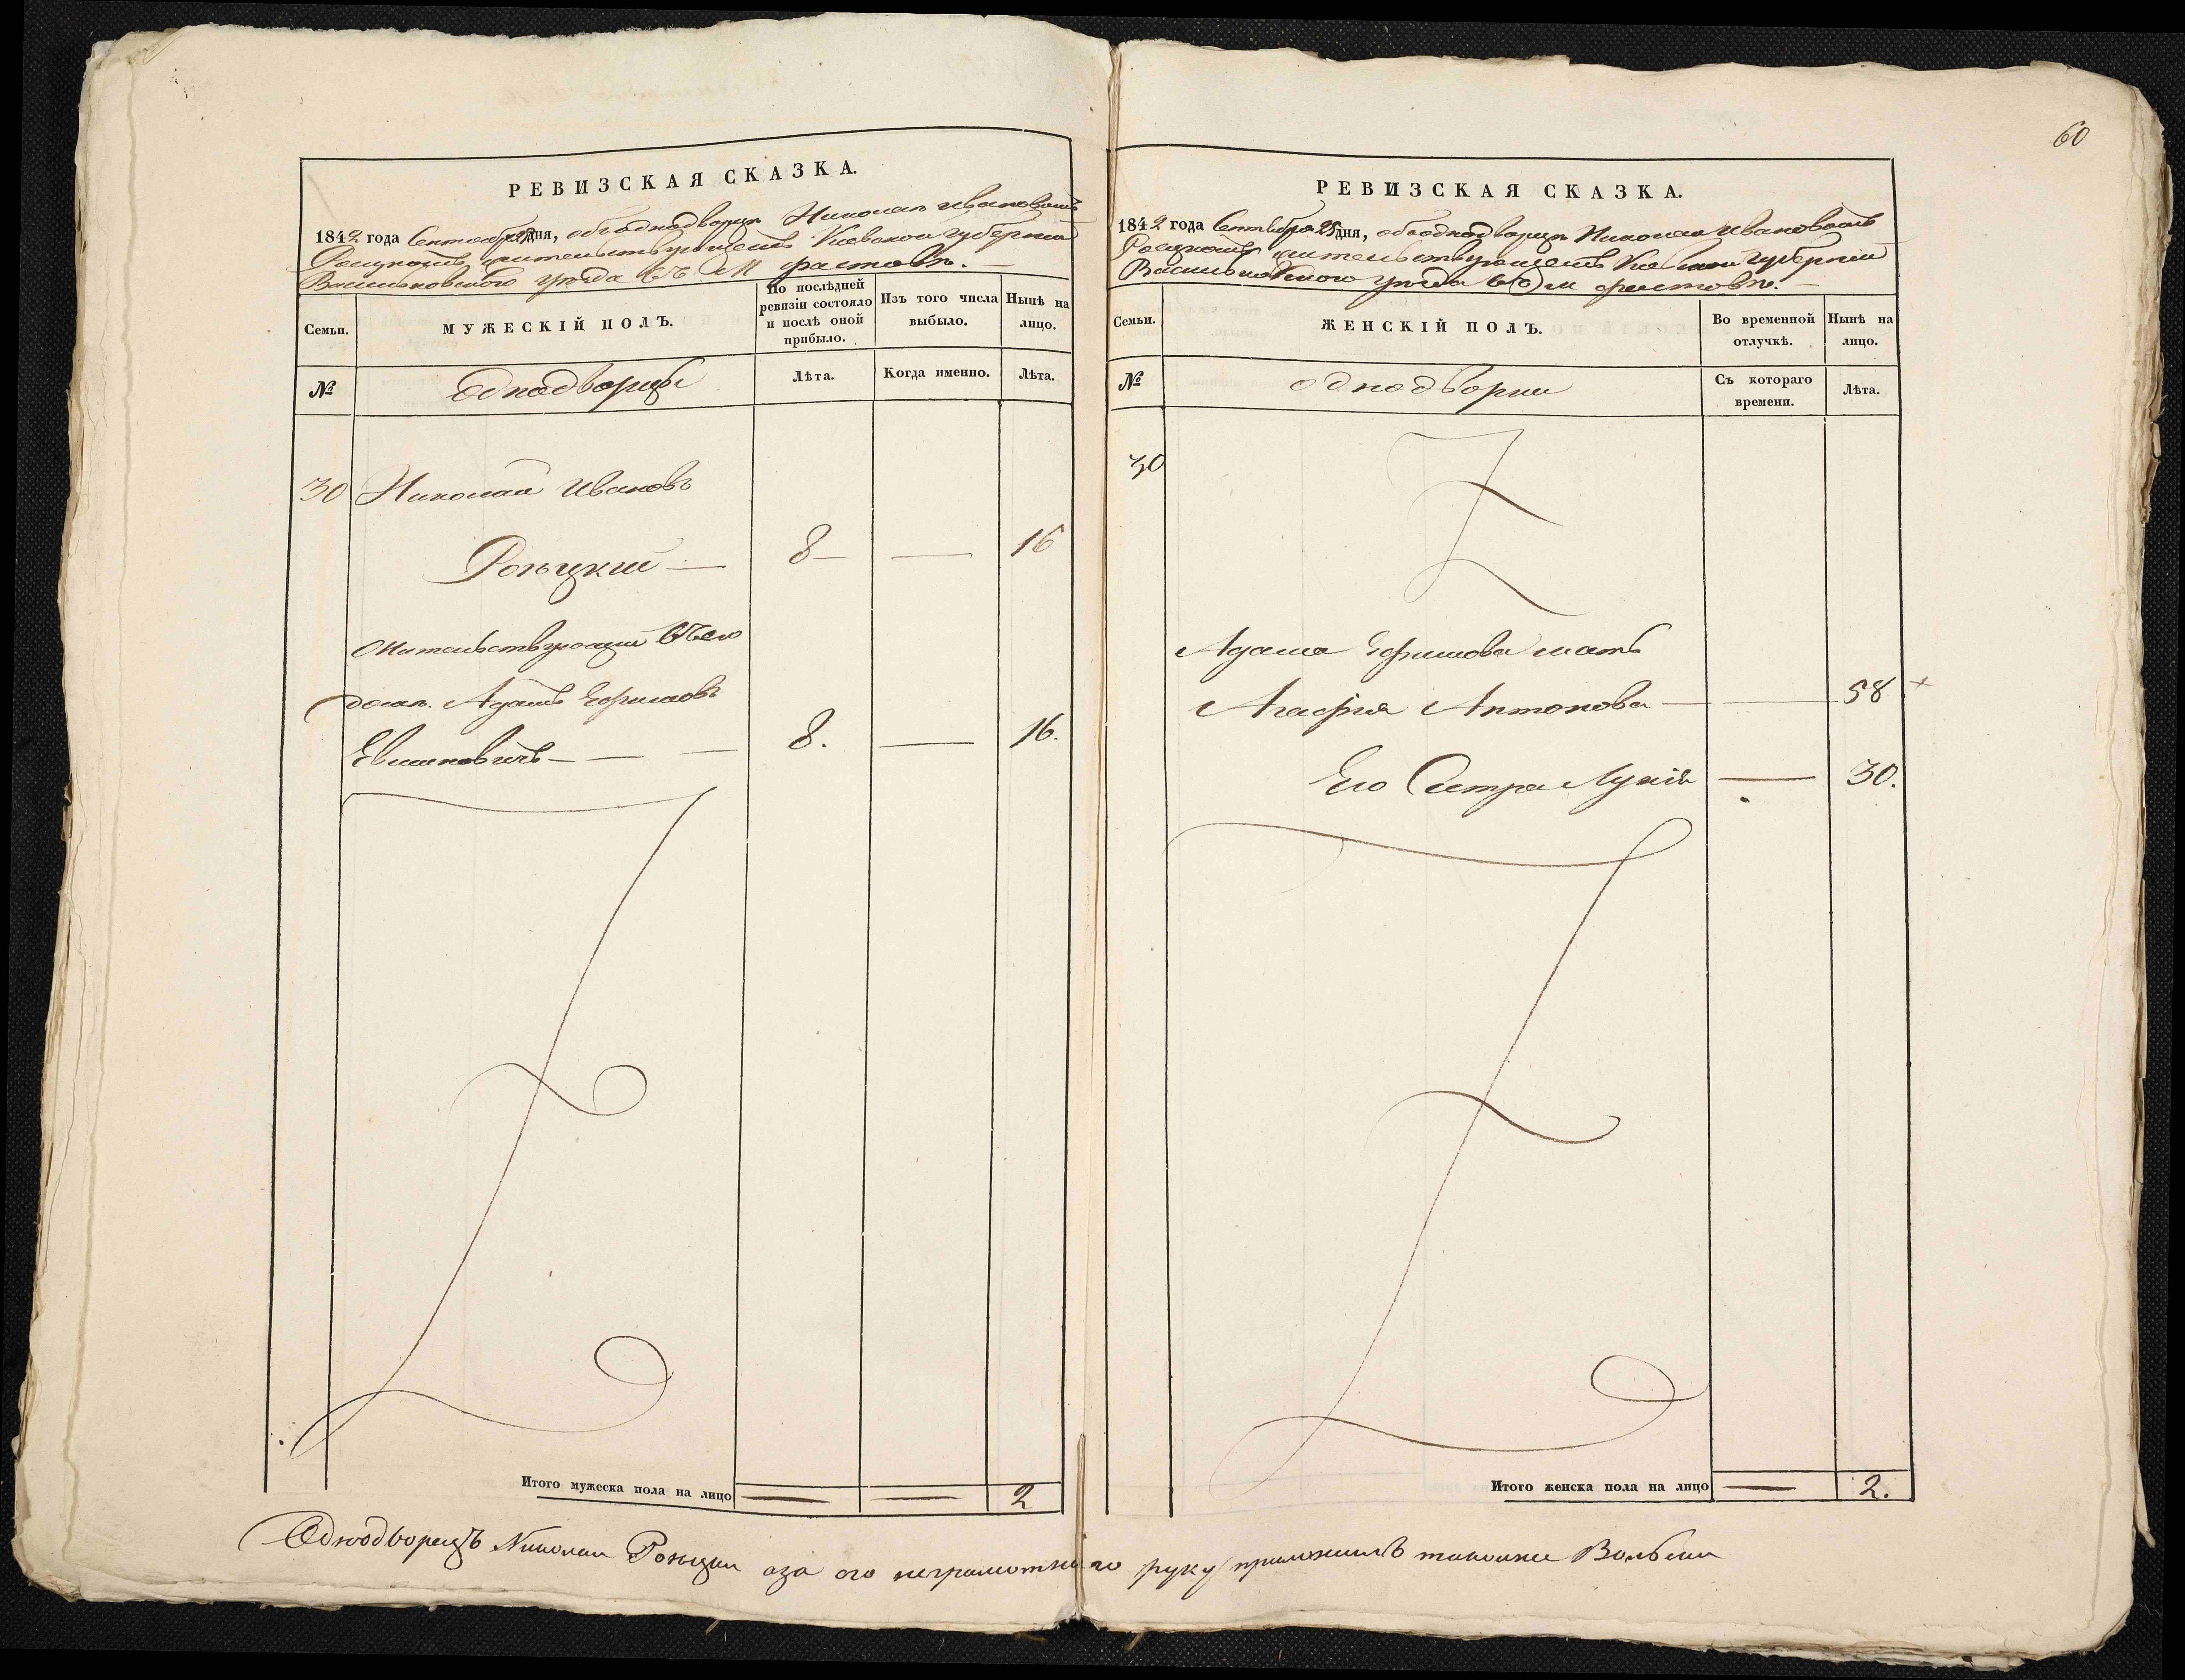 60
РЕВИЗСКАЯ СКАЗКА.
1842 года Сентября 25 дня, объ однодворцѣ Николаѣ Ивановомъ
жительствующемъ Киевской губерніи
Васильковского уѣзда въ М Фастовѣ.
Семьи.
МУЖЕСКІЙ ПОЛЪ.
По послѣдней ревизіи состояло и послѣ оной прибыло.
Изъ того числа выбыло.
Нынѣ на лицо.
№
Однодворцы
Лѣта.
Когда именно.
Лѣта.
30 Николай Ивановъ
Роньцкий — 8 — — 16
Жительствующий въ его
домѣ. Адамъ Ефимовъ
8. — 16.
Итого мужеска пола на лицо — — 2
РЕВИЗСКАЯ СКАЗКА.
1842 года Сентября 25 дня, объ однодворцѣ Николаѣ Ивановомъ
жительствующемъ Киевской губерніи
Васильковского уѣзда въ М Фастовѣ.
Семьи.
ЖЕНСКІЙ ПОЛЪ.
Во временной отлучкѣ.
Нынѣ на лицо.
№
Однодворки
Съ котораго времени.
Лѣта.
30
Адама Ефимова мать
Агафия Антонова — — 58 +
Его Сестра Лукія — 30.
Итого женска пола на лицо — 2.
Однодворецъ Николай Роньцкий аза его неграмотного руку приложилъ